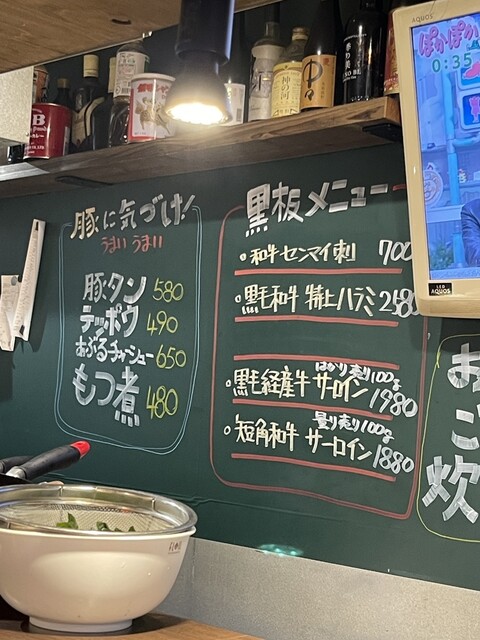 AQUOS
ぽかぽか
0:35
神の河
豚に気づけ!
うまい うまい
豚タン 580
テッポウ 490
あぶるチャーシュー 650
もつ煮 480
黒板メニュー
・和牛センマイ刺 700
・黒毛和牛 特上ハラミ 2180
はかり売り100g
・黒毛経産牛 サーロイン 1980
量り売り100g
・短角和牛 サーロイン 1880
LED
AQUOS
ご
炊